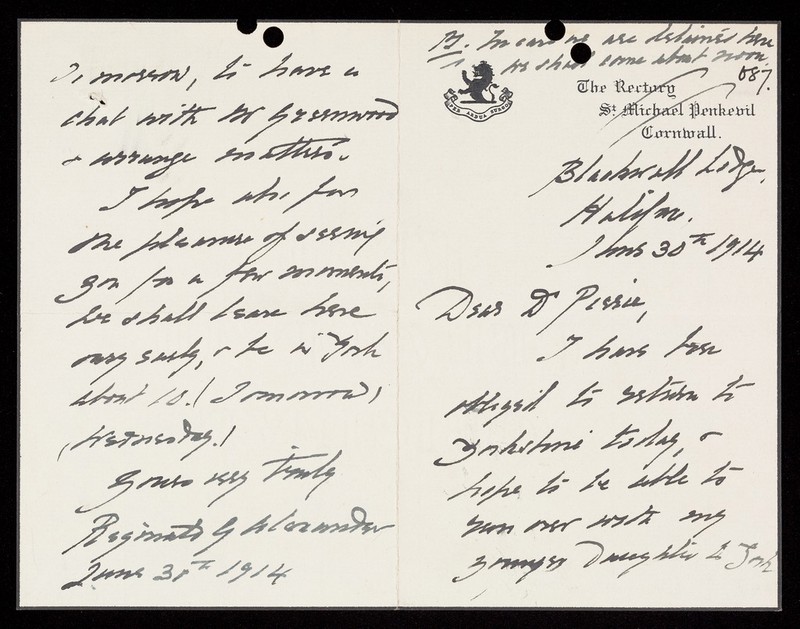 PS. In case we are detained here
we shall come about noon.
087.
PER ARDUA SURGO
The Rectory
St. Michael Penkevil
Cornwall.
Blackwall Lodge,
Halifax.
June 30th 1914
Dear Dr Pierce,
I have been
obliged to return to
Yorkshire today, &
hope to be able to
run over with my
younger Daughter to York
Tomorrow, to have a
chat with Mr Greenwood
& arrange matters.
I hope also for
the pleasure of seeing
you for a few moments,
We shall leave here
very early, & be in York
about 10. (Tomorrow)
(Wednesday.)
Yours very truly
Reginald G Alexander
June 30th 1914